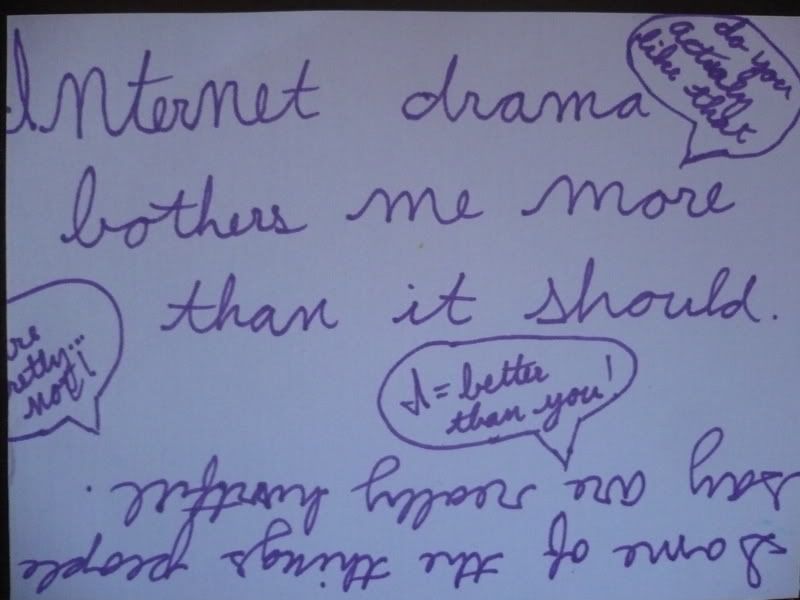 Internet drama
bothers me more
than it should.
do you
actually
like that
are
pretty...
not!
I = better
than you!
Some of the things people
say are really hurtful.